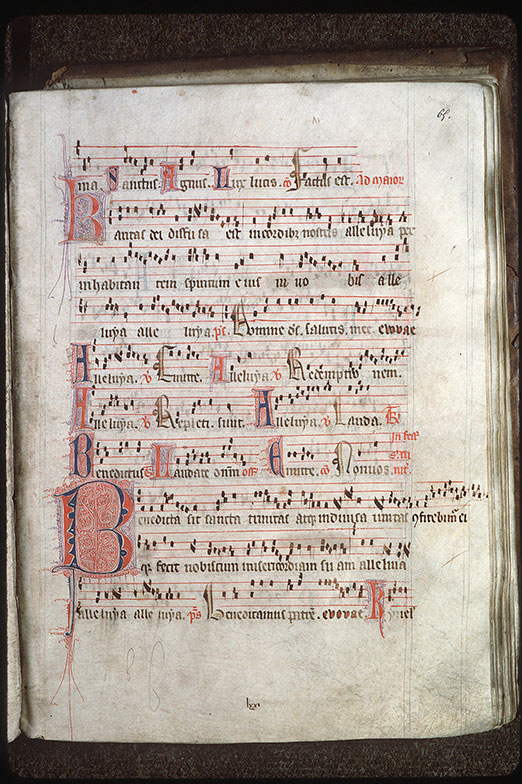 65.
ma. Sanctus. Agnus. Lux luc̄is. c̄o Factus est. Ad maior
Karitas dei diffusa est in cordibꝫ nostris alleluya per
inhabitan tem spiritum eius in uo bis alle
luya alle luya. ps̄. Domine ds̄. salutis. mee. evovae
Alleluya. v̄ Emitte. Alleluya v̄ Redemptor nem.
Alleluya. v̄ Repleti. sunt. Alleluya. v̄ Lauda.
In festo
Benedictus Laudate Emitte. c̄o Non vos.
Benedicta sit sancta trinitas atqꝫ indiuisa unitas ꝯfitebim̄ ei
qꝛ fecit nobiscum misericordiam su am alleluia
alleluya alle luya. ps̄ Benedicamus patrē. evovae Kyriel'
lxv